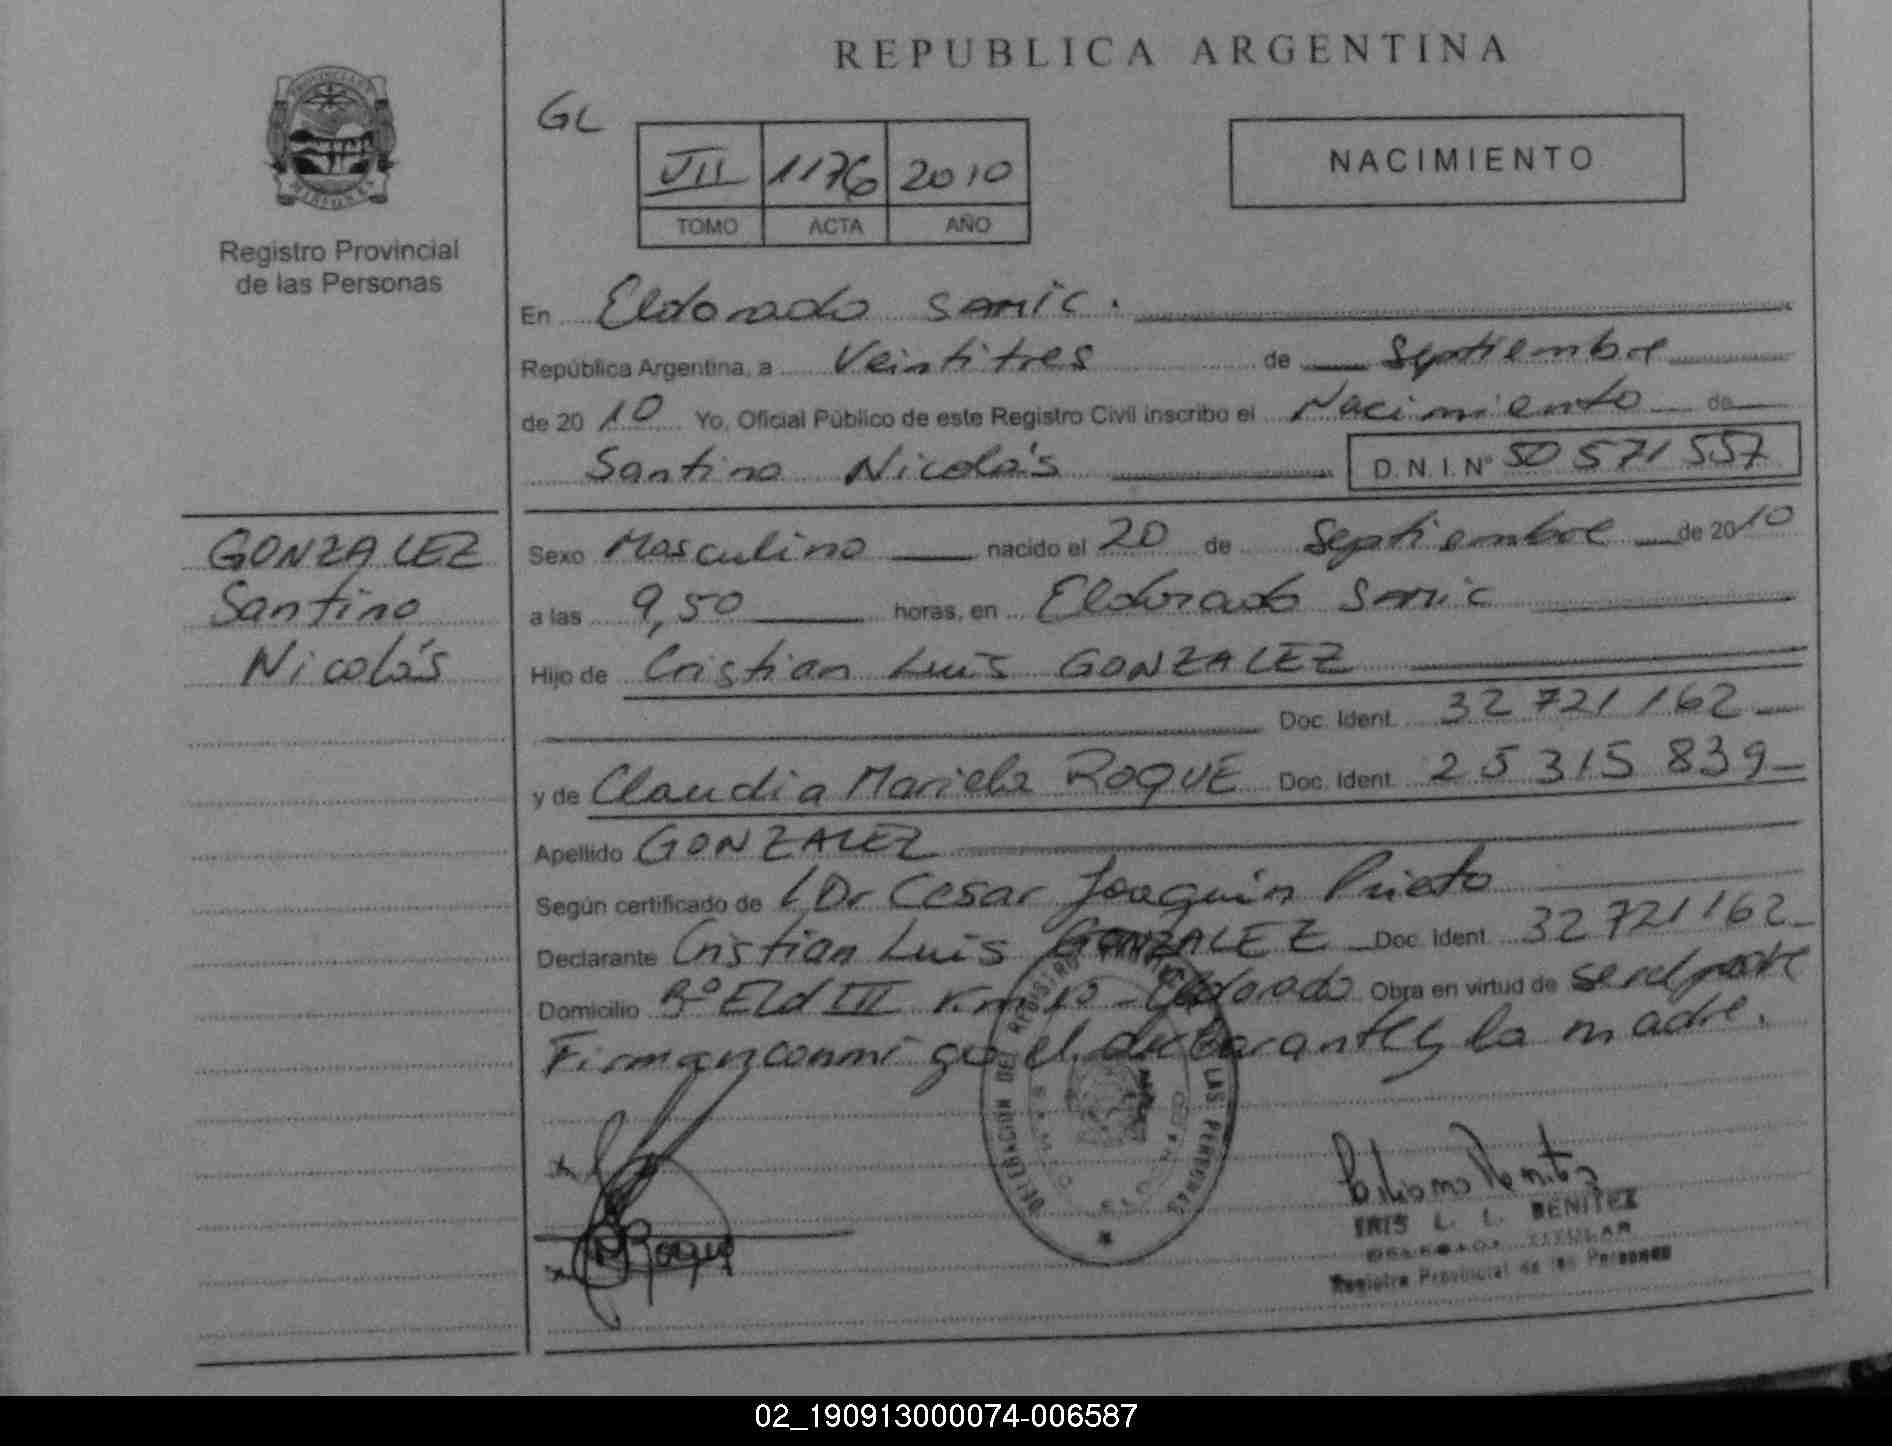 REPUBLICA ARGENTINA
PROVINCIA DE
MISIONES
Registro Provincial
de las Personas
GL
VII 1176 2010
TOMO ACTA AÑO
NACIMIENTO
En Eldorado SAMIC.
República Argentina, a Veintitres de Septiembre
de 2010 Yo, Oficial Público de este Registro Civil inscribo el Nacimiento de
Santino Nicolás D.N.I.Nº 50 571 557
GONZALEZ
Santino
Nicolás
Sexo Masculino nacido el 20 de Septiembre de 2010
a las 9,50 horas, en Eldorado Samic
Hijo de Cristian Luis GONZALEZ
Doc. Ident. 32 721 162
y de Claudia Mariela ROQUE Doc. Ident. 25 315 839
Apellido GONZALEZ
Según certificado de Dr Cesar Joaquín Prieto
Declarante Cristian Luis GONZALEZ Doc. Ident. 32721162
Domicilio Bº Eld III Km 10 - Eldorado Obra en virtud de ser el padre
Firman conmigo el declarante y la madre.
DELEGACIÓN DEL REGISTRO LAS PERSONAS
MISIONES
Roque
Liliana Benitez
IRIS L. L. BENITEZ
DELEGADA TITULAR
Registro Provincial de las Personas
02_190913000074-006587